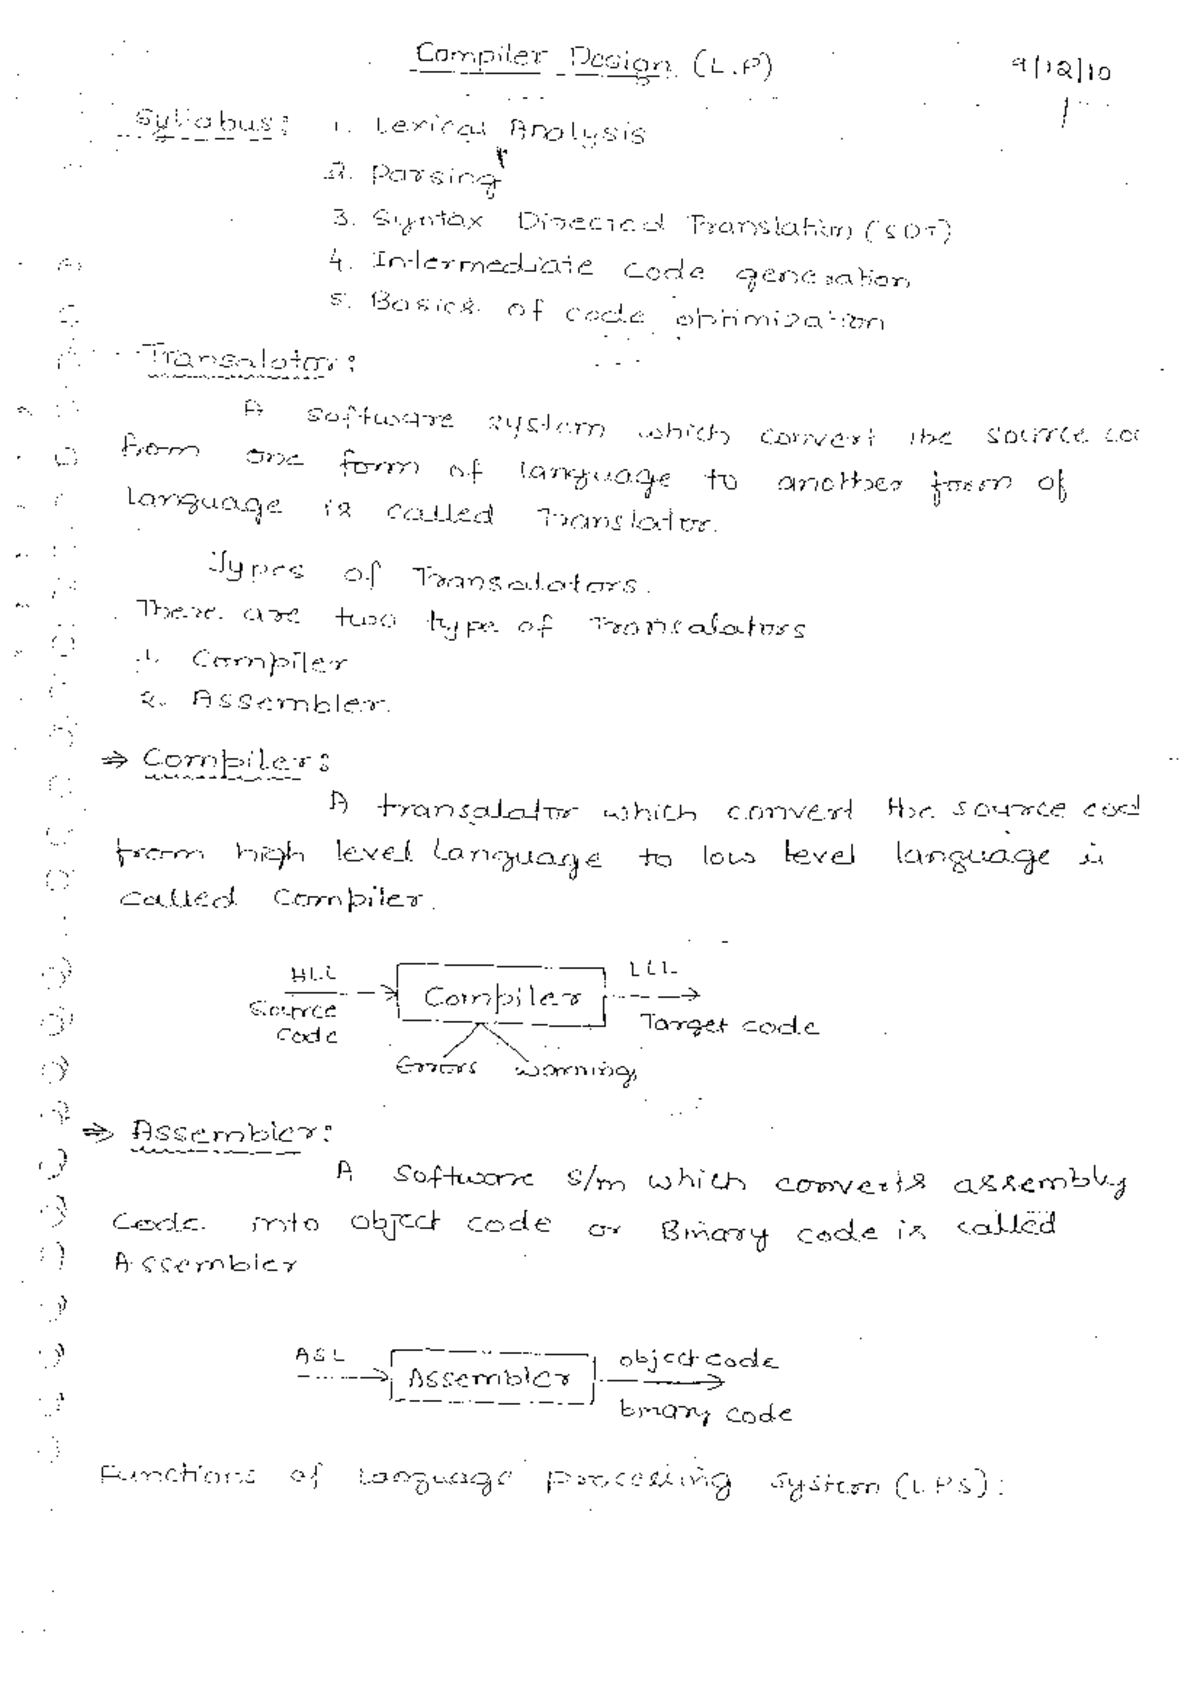 Compiler Design (L.P)
9/12/10
Syllabus: 1. Lexical Analysis
2. Parsing
3. Syntax Directed Translation (SDT)
4. Intermediate code generation
5. Basics of code optimization
Transalator:
A software system which convert the source co
from one form of language to another form of
language is called Translator.
Types of Transalators.
There are two type of Transalators
1. Compiler
2. Assembler.
⇒ Compiler:
A transalator which convert the source cod
from high level language to low level language is
called Compiler.
HLL
Source
Code
Compiler
LLL
Target code
Errors warning
⇒ Assembler:
A software s/m which converts assembly
code into object code or Binary code is called
Assembler
ASL
Assembler
object code
binary code
Functions of Language processing system (LPS):